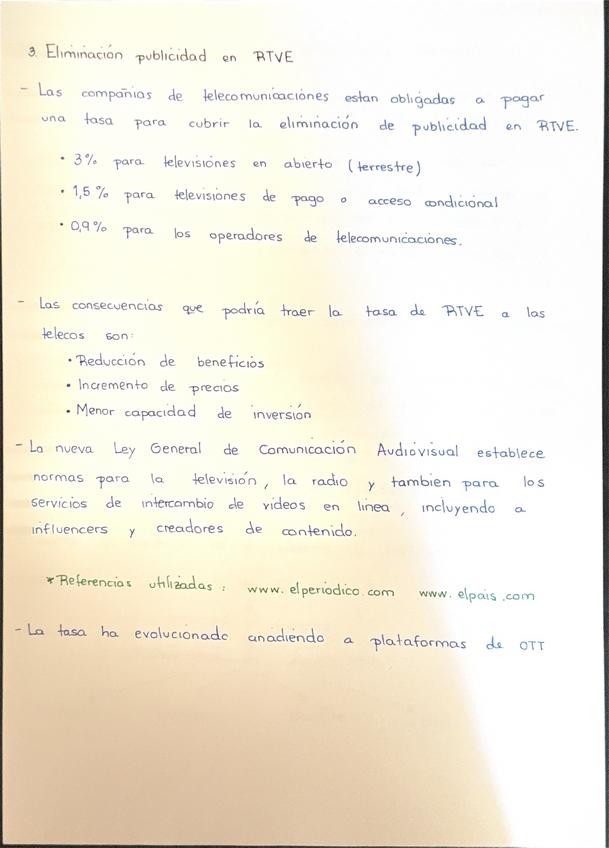 3. Eliminación publicidad en RTVE
- Las compañias de telecomunicaciones estan obligadas a pagar
una tasa para cubrir la eliminación de publicidad en RTVE.
• 3% para televisiones en abierto (terrestre)
• 1,5% para televisiones de pago o acceso condicional
• 0,9% para los operadores de telecomunicaciones.
- Las consecuencias que podría traer la tasa de RTVE a las
telecos son:
• Reducción de beneficios
• Incremento de precios
• Menor capacidad de inversión
- La nueva Ley General de Comunicación Audiovisual establece
normas para la televisión, la radio y tambien para los
servicios de intercambio de videos en linea, incluyendo a
influencers y creadores de contenido.
* Referencias utilizadas: www.elperiodico.com www.elpais.com
- La tasa ha evolucionado anadiendo a plataformas de OTT